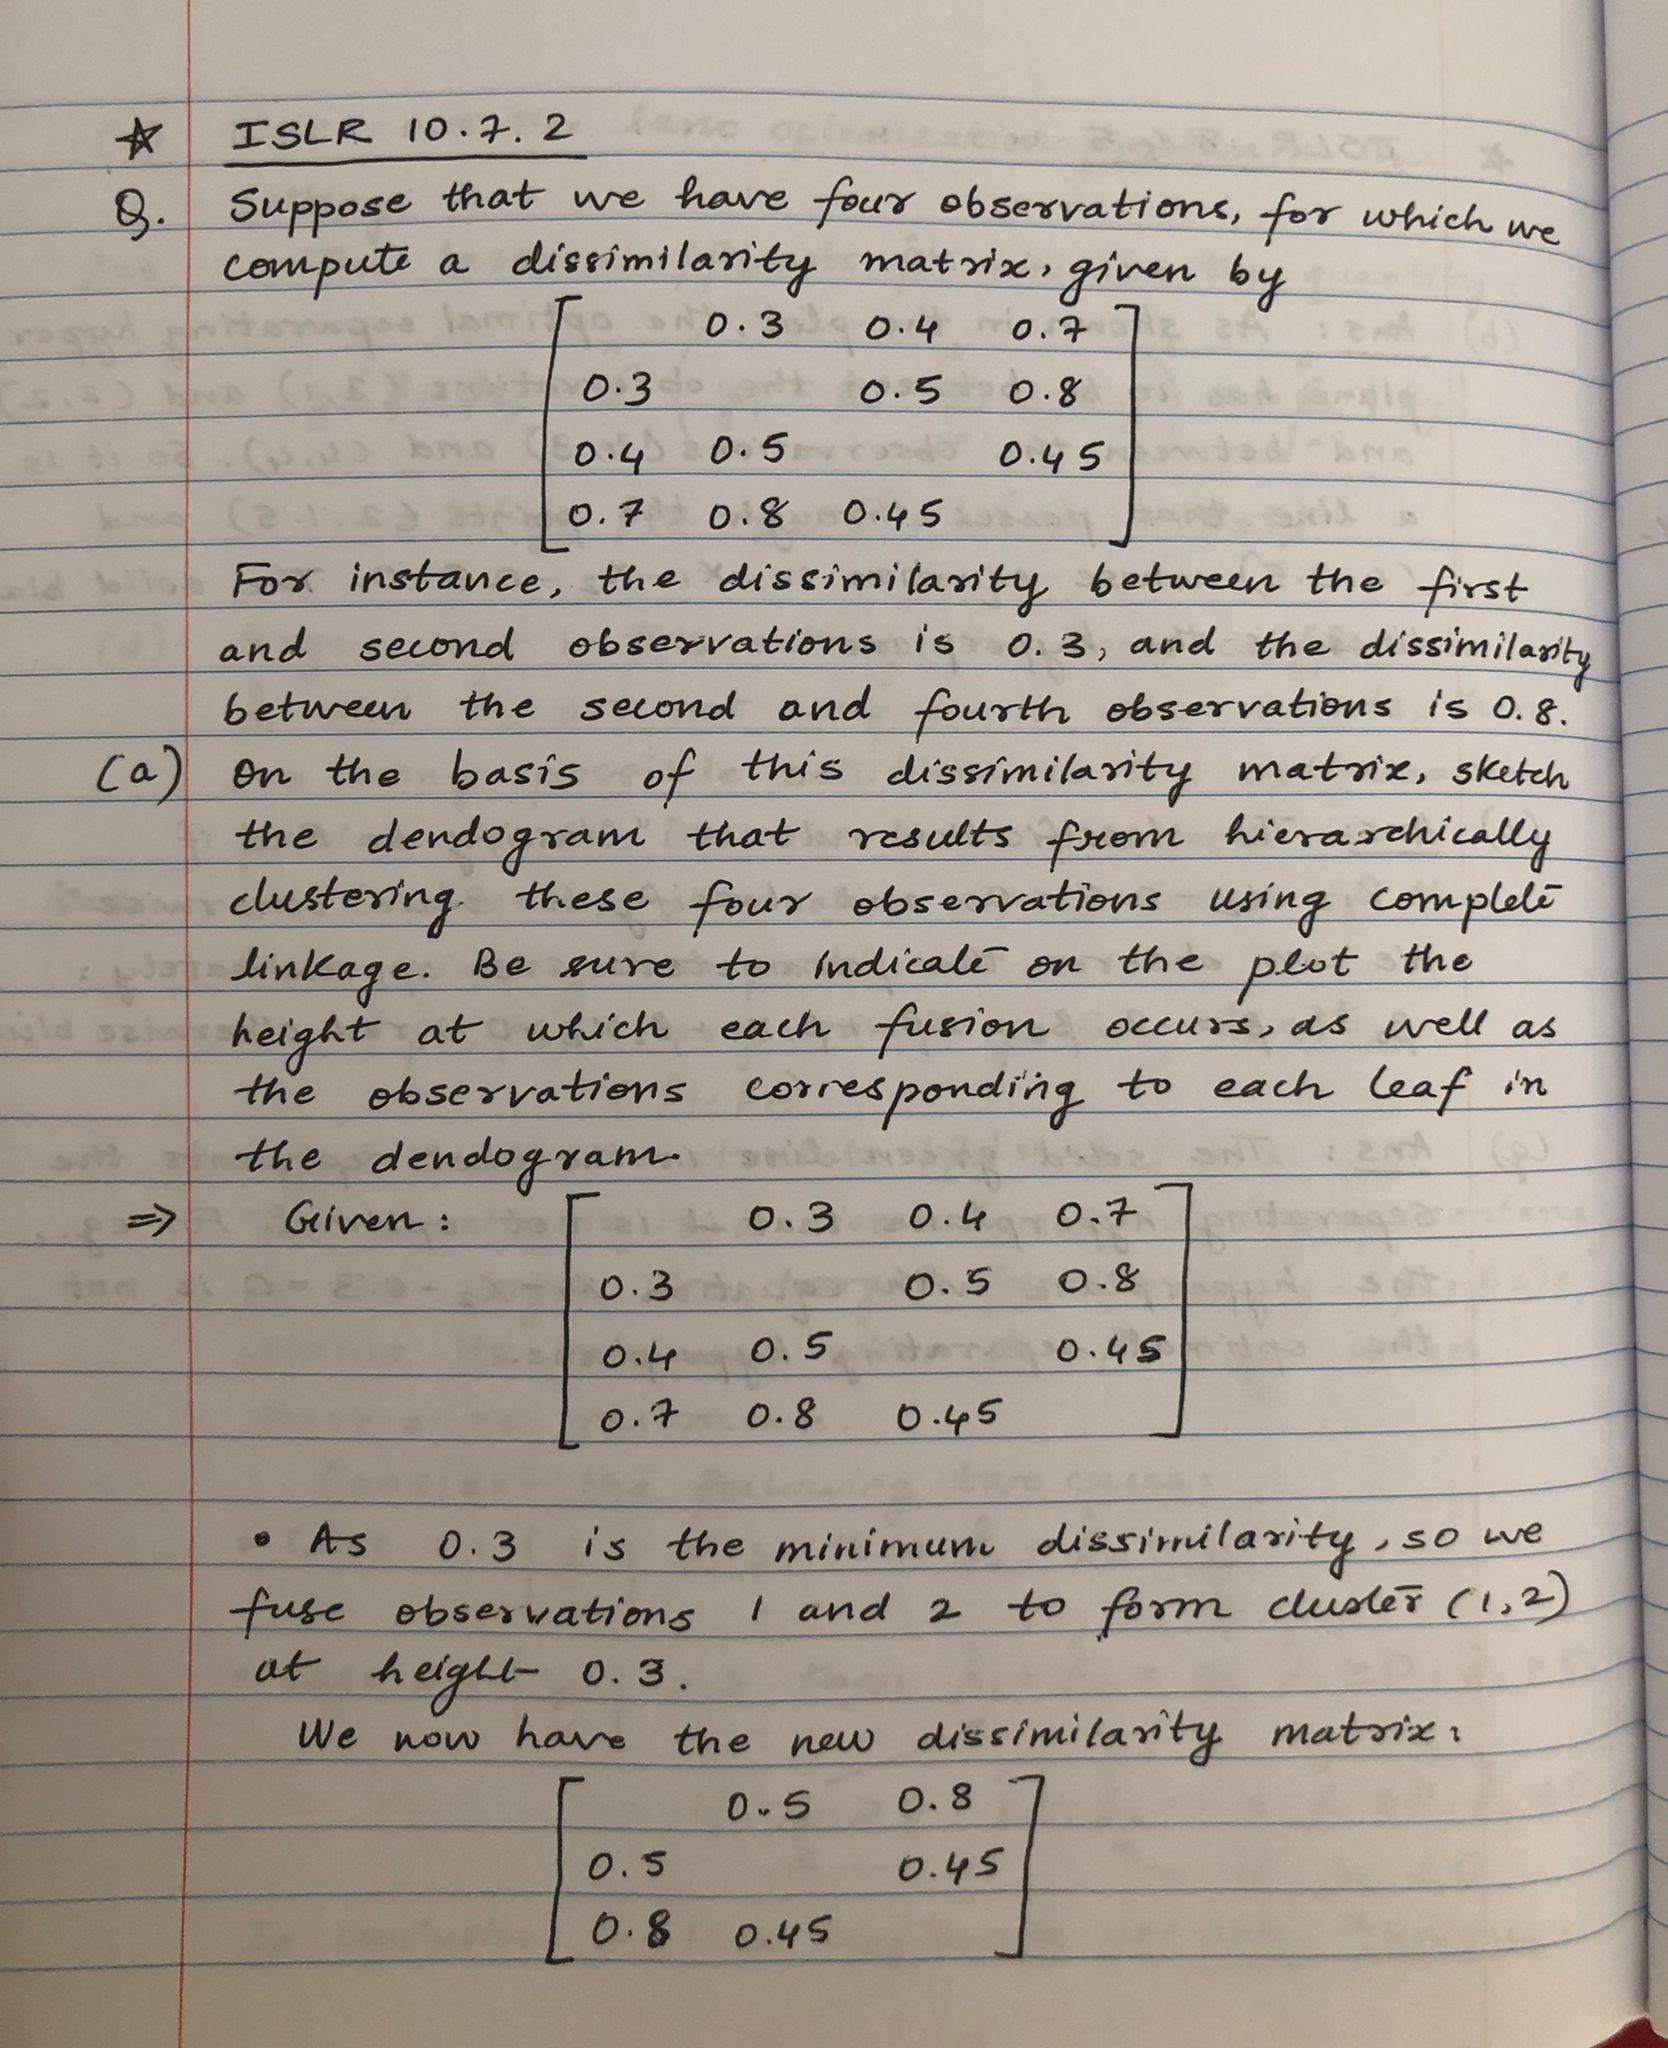 ☆ ISLR 10.7.2
Q. Suppose that we have four observations, for which we
compute a dissimilarity matrix, given by
0.3 0.4 0.7
0.3 0.5 0.8
0.4 0.5 0.45
0.7 0.8 0.45
For instance, the dissimilarity between the first
and second observations is 0.3, and the dissimilarity
between the second and fourth observations is 0.8.
(a) On the basis of this dissimilarity matrix, sketch
the dendogram that results from hierarchically
clustering these four observations using complete
linkage. Be sure to indicate on the plot the
height at which each fusion occurs, as well as
the observations corresponding to each leaf in
the dendogram.
⇒ Given :
0.3 0.4 0.7
0.3 0.5 0.8
0.4 0.5 0.45
0.7 0.8 0.45
• As 0.3 is the minimum dissimilarity, so we
fuse observations 1 and 2 to form cluster (1,2)
at height 0.3.
We now have the new dissimilarity matrix:
0.5 0.8
0.5 0.45
0.8 0.45